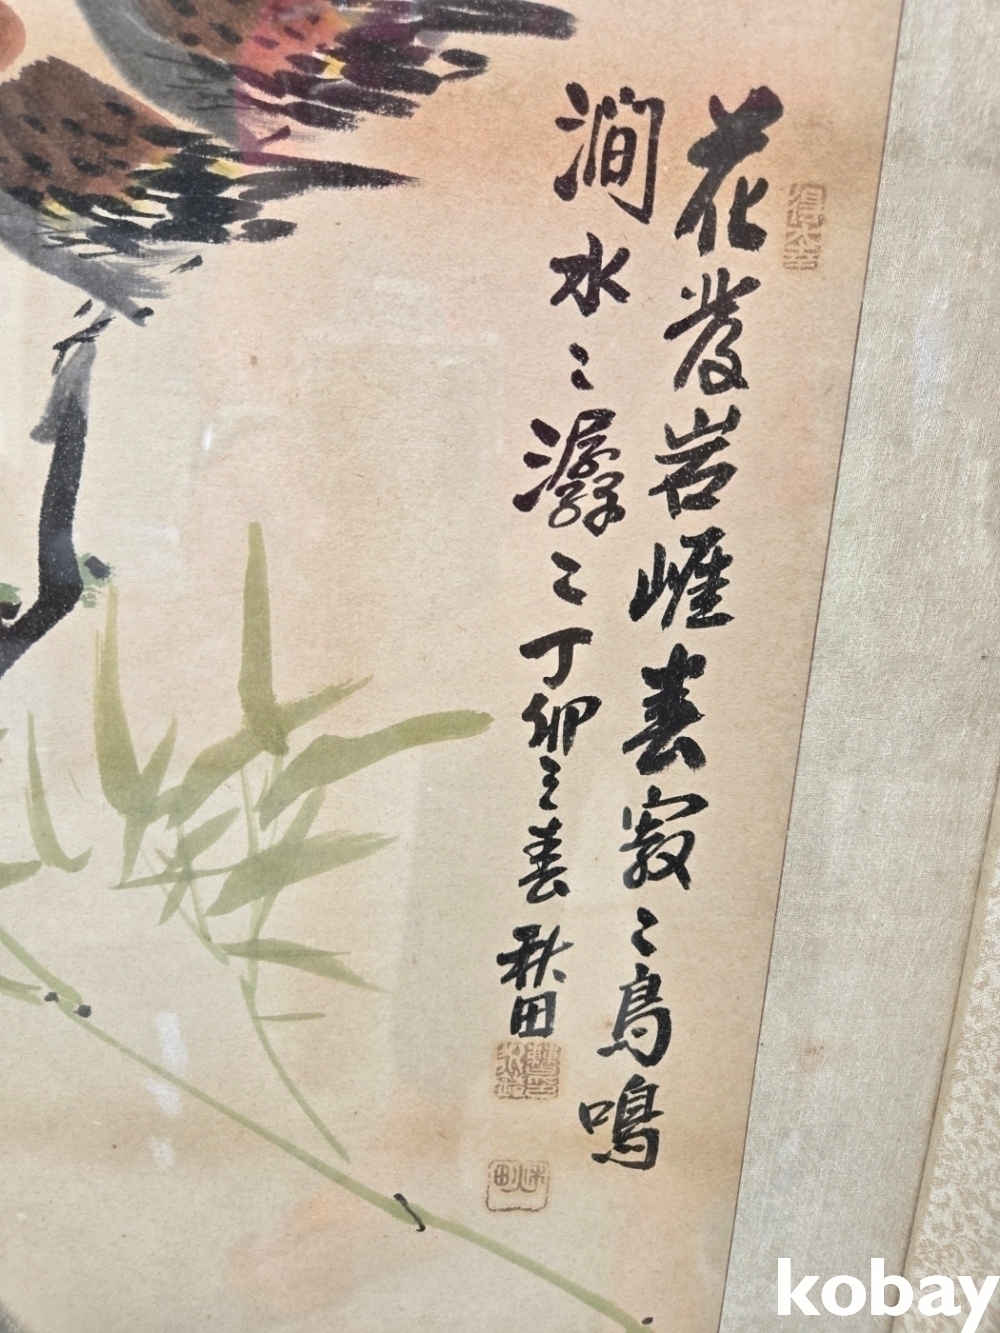 花發岩崕春寂〻鳥鳴
澗水〻潺〻丁卯之春
秋田
kobay